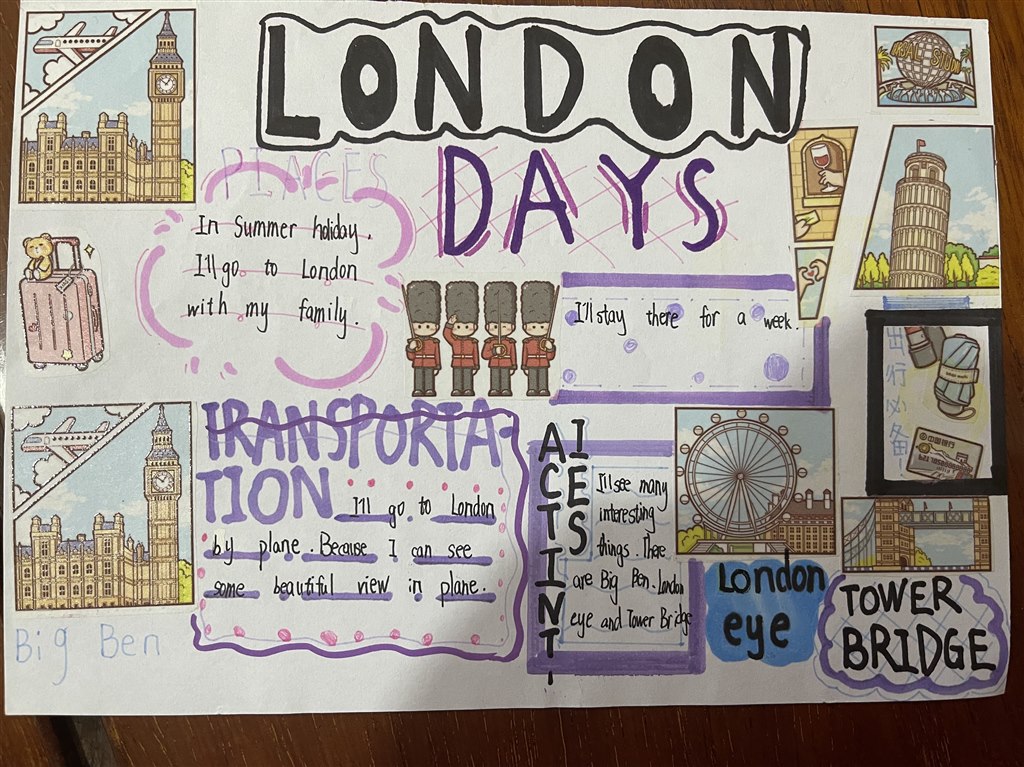 LONDON
DAYS
PLACES
In Summer holiday.
I'll go to London
with my family.
I'll stay there for a week.
TRANSPORTA-
TION
I'll go to London
by plane. Because I can see
some beautiful view in plane.
ACTINT-
IES
I'll see many
interesting
things. There
are Big Ben. London
eye and Tower Bridge
Big Ben
London
eye
TOWER
BRIDGE
出行必备
中国银行